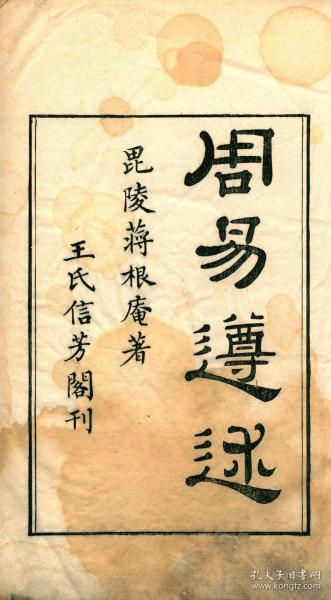 周易遵述
毘陵蔣根庵著
王氏信芳閣刊
孔夫子旧书网
www.kongfz.com